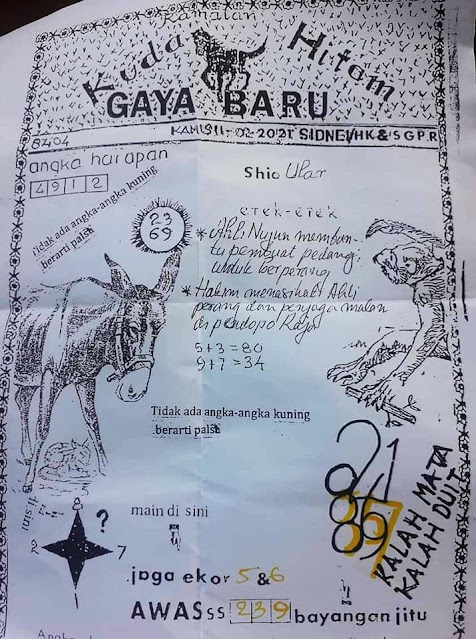 Ramalan
Kuda Hitam
GAYA BARU
8404
KAMIS 11-02-2021 SIDNEY/HK & SGP.R
angka harapan
4912
Shio Ular
Tidak ada angka-angka kuning
berarti palsu
23
69
etek-etek
* Ahli Nujun memban-
tu pembuat pedang
untuk berperang
* Hakim menasihati Ahli
perang dan penjaga malam
di pendopo Raja
5+3=80
9+7=34
Tidak ada angka-angka kuning
berarti palsu
di sini
8
?
2
7
1
main di sini
21
KALAH MATA
KALAH DUIT
jaga ekor 5 & 6
AWASss 239 bayangan jitu